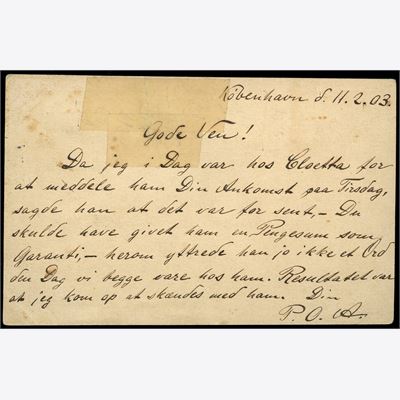 København d. 11.2.03.
Gode Ven!
Da jeg i Dag var hos Cloetta for
at meddele ham Din Ankomst paa Tirsdag,
sagde han at det var for sent, – Du
skulde have givet ham en Pengesum som
Garanti, – herom yttrede han jo ikke et Ord
den Dag vi begge vare hos ham. Resultatet var
at jeg kom op at skændes med ham. Din
P. O. A.